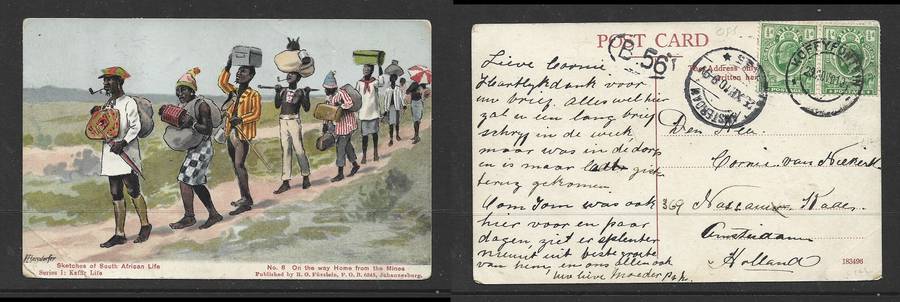 Sketches of South African Life
Series 1: Kaffir Life
No. 6 On the way Home from the Mines
Published by H. O. Fürstein, P. O. B. 6245, Johannesburg.
POST CARD
The Address only
written here
B. 56
AMSTERDAM
KOFFYFONTEIN
Lieve Corrie
Hartelyk dank voor
uw brief. Alles wel hier
zal u een lang brief
schryf in de week
maar was in de dorp
en is maar laat
terug gekomen.
Oom Tom was ook
hier voor een paar
dagen, ziet er splenter
nieuwt uit beste groete
van hem, en ons allen ook
uw lieve Moeder
Den Heer
Corrie van Niekerk
369 Nassau Kade
Amsterdam
Holland
183496